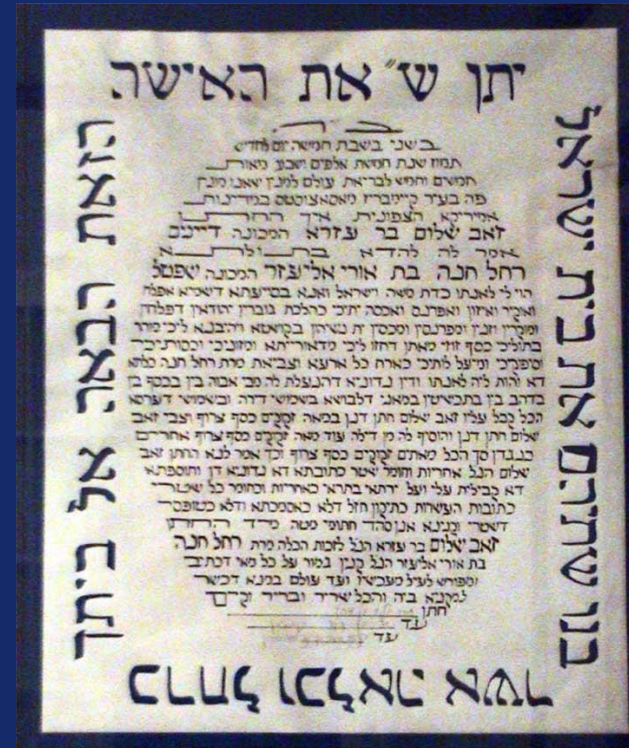 יתן ש״ את האישה
הזאת הבאה אל ביתך
כרחל וכלאה אשר
בנו שתיהם את בית ישראל
בשני בשבת חמישה יום לחדש
תמוז שנת חמשת אלפים ושבע מאות
חמשים וחמש לבריאת עולם למנין שאנו מונין
פה בעיר קיימברידז מאסאצוסטס במדינות
אמריקא הצפונית איך החתן
זאב שלום בר עזרא המכונה דיינים
אמר לה להדא בתולתא
רחל חנה בת אורי אליעזר המכונה
הוי לי לאנתו כדת משה וישראל ואנא בסייעתא דשמיא אפלח
ואוקיר ואיזון ואפרנס ואכסה יתיכי כהלכת גוברין יהודאין דפלחין
ומוקרין וזנין ומפרנסין ומכסין ית נשיהון בקושטא ויהבנא ליכי מוהר
בתוליכי כסף זוזי מאתן דחזו ליכי מדאוריתא ומזוניכי וכסותיכי
וסיפוקיכי ומיעל לותיכי כארח כל ארעא וצביאת מרת רחל חנה כלתא
דא והות ליה לאנתו ודין נדוניא דהנעלת לה מבי אבוה בין בכסף בין
בדהב בין בתכשיטין במאני דלבושא בשימושי דירה ובשמושי דערסא
הכל קבל עליו זאב שלום חתן דנן במאה זקוקים כסף צרוף וצבי זאב
שלום חתן דנן והוסיף לה מן דילה עוד מאה זקוקים כסף צרוף אחרים
כנגדן סך הכל מאתים זקוקים כסף צרוף וכך אמר לנא החתן זאב
שלום הנל אחריות וחומר שטר כתובתא דא נדוניא דן ותוספתא
דא קבילית עלי ועל ירתאי בתראי כאחריות וכחומר כל שטרי
כתובות העשויות כתיקון חזל דלא כאסמכתא ודלא כטופסי
דשטרי וקנינא אנן סהדי חתומי מטה מיד החתן
זאב שלום בר עזרא הנל לזכות הכלה מרת רחל חנה
בת אורי אליעזר הנל קנין גמור על כל מאי דכתיב
ומפורש לעיל מעכשיו ועד עולם במנא דכשר
למקניא ביה והכל שריר ובריר וקים
חתן
עד
עד